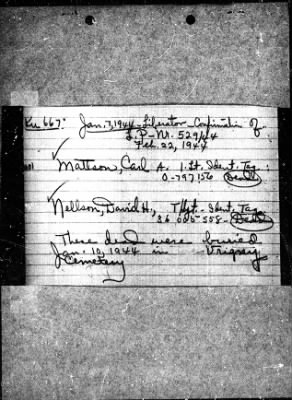 Ku 667. Jan. 7, 1944 - Liberator - Confirmation of
L.P - Nr. 529/44
Feb. 22, 1944
Mattson, Carl A. 1.Lt. Ident. Tag:
0-797156 Dead
Nellson, David H., T/Sgt. - Ident. Tag
36 005 558 - Dead
These dead were buried
Jan. 10, 1944 in
Cemetery